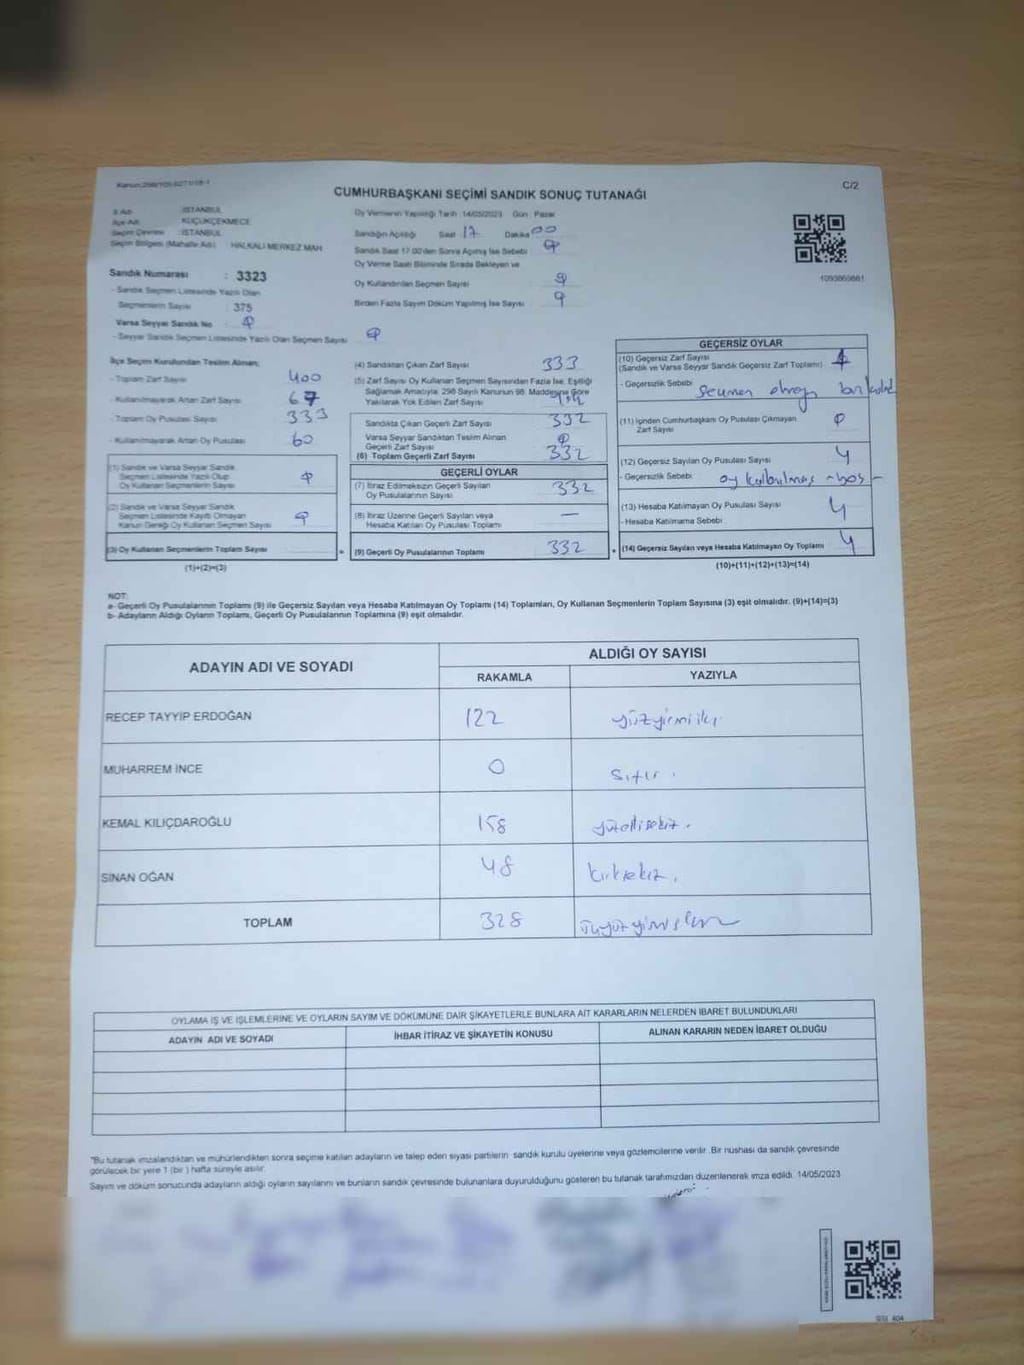 Kanun:298/105-6271/18-1
C/2
CUMHURBAŞKANI SEÇİMİ SANDIK SONUÇ TUTANAĞI
İl Adı : İSTANBUL
İlçe Adı : KÜÇÜKÇEKMECE
Seçim Çevresi : İSTANBUL
Seçim Bölgesi (Mahalle Adı) HALKALI MERKEZ MAH
Sandık Numarası : 3323
- Sandık Seçmen Listesinde Yazılı Olan
Seçmenlerin Sayısı : 375
Varsa Seyyar Sandık No
- Seyyar Sandık Seçmen Listesinde Yazılı Olan Seçmen Sayısı
Oy Vermenin Yapıldığı Tarih :14/05/2023 Gün : Pazar
Sandığın Açıldığı Saat 17 Dakika 00
Sandık Saat 17.00'den Sonra Açılmış İse Sebebi
Oy Verme Saati Bitiminde Sırada Bekleyen ve
Oy Kullandırılan Seçmen Sayısı
Birden Fazla Sayım Döküm Yapılmış İse Sayısı
1093869861
İlçe Seçim Kurulundan Teslim Alınan;
- Toplam Zarf Sayısı 400
- Kullanılmayarak Artan Zarf Sayısı 67
- Toplam Oy Pusulası Sayısı 333
- Kullanılmayarak Artan Oy Pusulası 60
(1) Sandık ve Varsa Seyyar Sandık
Seçmen Listesinde Yazılı Olup
Oy Kullanan Seçmenlerin Sayısı
(2) Sandık ve Varsa Seyyar Sandık
Seçmen Listesinde Kayıtlı Olmayan
Kanun Gereği Oy Kullanan Seçmen Sayısı
(3) Oy Kullanan Seçmenlerin Toplam Sayısı =
(1)+(2)=(3)
(4) Sandıktan Çıkan Zarf Sayısı 333
(5) Zarf Sayısı Oy Kullanan Seçmen Sayısından Fazla İse, Eşitliği
Sağlamak Amacıyla, 298 Sayılı Kanunun 98. Maddesine Göre
Yakılarak Yok Edilen Zarf Sayısı
Sandıkta Çıkan Geçerli Zarf Sayısı 332
Varsa Seyyar Sandıktan Teslim Alınan
Geçerli Zarf Sayısı
(6) Toplam Geçerli Zarf Sayısı 332
GEÇERLİ OYLAR
(7) İtiraz Edilmeksizin Geçerli Sayılan
Oy Pusulalarının Sayısı 332
(8) İtiraz Üzerine Geçerli Sayılan veya
Hesaba Katılan Oy Pusulası Toplamı —
(9) Geçerli Oy Pusulalarının Toplamı 332 +
GEÇERSİZ OYLAR
(10) Geçersiz Zarf Sayısı
(Sandık ve Varsa Seyyar Sandık Geçersiz Zarf Toplamı)
- Geçersizlik Sebebi
(11) İçinden Cumhurbaşkanı Oy Pusulası Çıkmayan
Zarf Sayısı
(12) Geçersiz Sayılan Oy Pusulası Sayısı 4
- Geçersizlik Sebebi
(13) Hesaba Katılmayan Oy Pusulası Sayısı 4
- Hesaba Katılmama Sebebi
(14) Geçersiz Sayılan veya Hesaba Katılmayan Oy Toplamı 4
(10)+(11)+(12)+(13)=(14)
NOT:
a- Geçerli Oy Pusulalarının Toplamı (9) ile Geçersiz Sayılan veya Hesaba Katılmayan Oy Toplamı (14) Toplamları, Oy Kullanan Seçmenlerin Toplam Sayısına (3) eşit olmalıdır. (9)+(14)=(3)
b- Adayların Aldığı Oyların Toplamı, Geçerli Oy Pusulalarının Toplamına (9) eşit olmalıdır.
ADAYIN ADI VE SOYADI
ALDIĞI OY SAYISI
RAKAMLA YAZIYLA
RECEP TAYYİP ERDOĞAN 122 yüzyirmiiki
MUHARREM İNCE 0 sıfır.
KEMAL KILIÇDAROĞLU 158 yüzellisekiz.
SİNAN OĞAN 48 kırksekiz.
TOPLAM 328
OYLAMA İŞ VE İŞLEMLERİNE VE OYLARIN SAYIM VE DÖKÜMÜNE DAİR ŞİKAYETLERLE BUNLARA AİT KARARLARIN NELERDEN İBARET BULUNDUKLARI
ADAYIN ADI VE SOYADI İHBAR İTİRAZ VE ŞİKAYETİN KONUSU ALINAN KARARIN NEDEN İBARET OLDUĞU
*Bu tutanak imzalandıktan ve mühürlendikten sonra seçime katılan adayların ve talep eden siyasi partilerin sandık kurulu üyelerine veya gözlemcilerine verilir. Bir nüshası da sandık çevresinde
görülecek bir yere 1 (bir) hafta süreyle asılır.
Sayım ve döküm sonucunda adayların aldığı oyların sayılarını ve bunların sandık çevresinde bulunanlara duyurulduğunu gösteren bu tutanak tarafımızdan düzenlenerek imza edildi. 14/05/2023